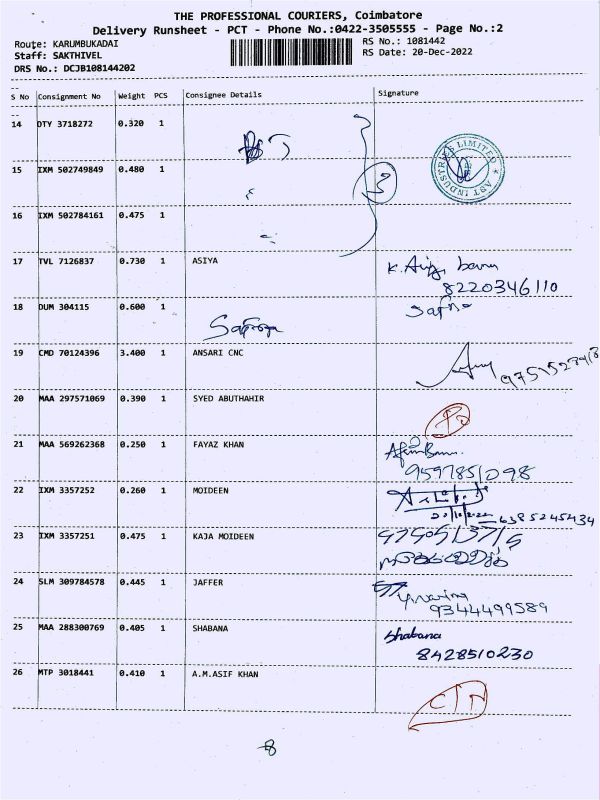 THE PROFESSIONAL COURIERS, Coimbatore
Delivery Runsheet - PCT - Phone No.:0422-3505555 - Page No.:2
Route: KARUMBUKADAI RS No.: 1081442
Staff: SAKTHIVEL RS Date: 20-Dec-2022
DRS No.: DCJB108144202
S No Consignment No Weight PCS Consignee Details Signature
14 DTY 3718272 0.320 1
15 IXM 502749849 0.480 1
3
AST INDUSTRIES LIMITED
16 IXM 502784161 0.475 1
17 TVL 7126837 0.730 1 ASIYA
8220346110
18 DUM 304115 0.600 1
19 CMD 70124396 3.400 1 ANSARI CNC
20 MAA 297571069 0.390 1 SYED ABUTHAHIR
21 MAA 569262368 0.250 1 FAYAZ KHAN
9597851098
22 IXM 3357252 0.260 1 MOIDEEN
6385245434
23 IXM 3357251 0.475 1 KAJA MOIDEEN
24 SLM 309784578 0.445 1 JAFFER
9344499589
25 MAA 288300769 0.405 1 SHABANA Shabana
8428510230
26 MTP 3018441 0.410 1 A.M.ASIF KHAN
8